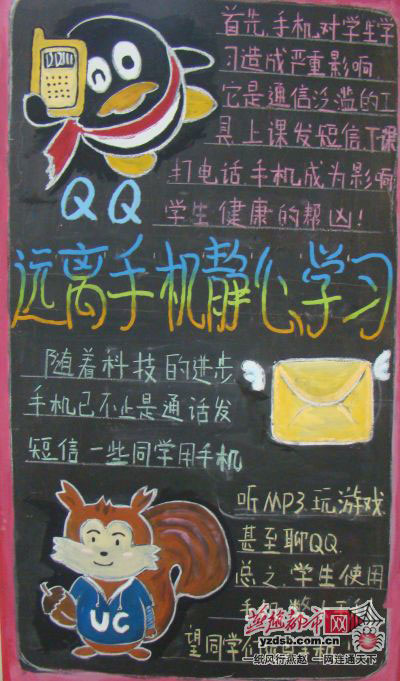 首先,手机对学生学
习造成严重影响
它是通信泛滥的工
具上课发短信下课
打电话手机成为影响
学生健康的帮凶!
QQ
远离手机静心学习
随着科技的进步
手机已不止是通话发
短信一些同学用手机
听MP3.玩游戏.
甚至聊QQ.
总之,学生使用
手机
望同学们
UC
燕赵都市网
www.yzdsb.com.cn
一纸风行燕赵 一网连通天下